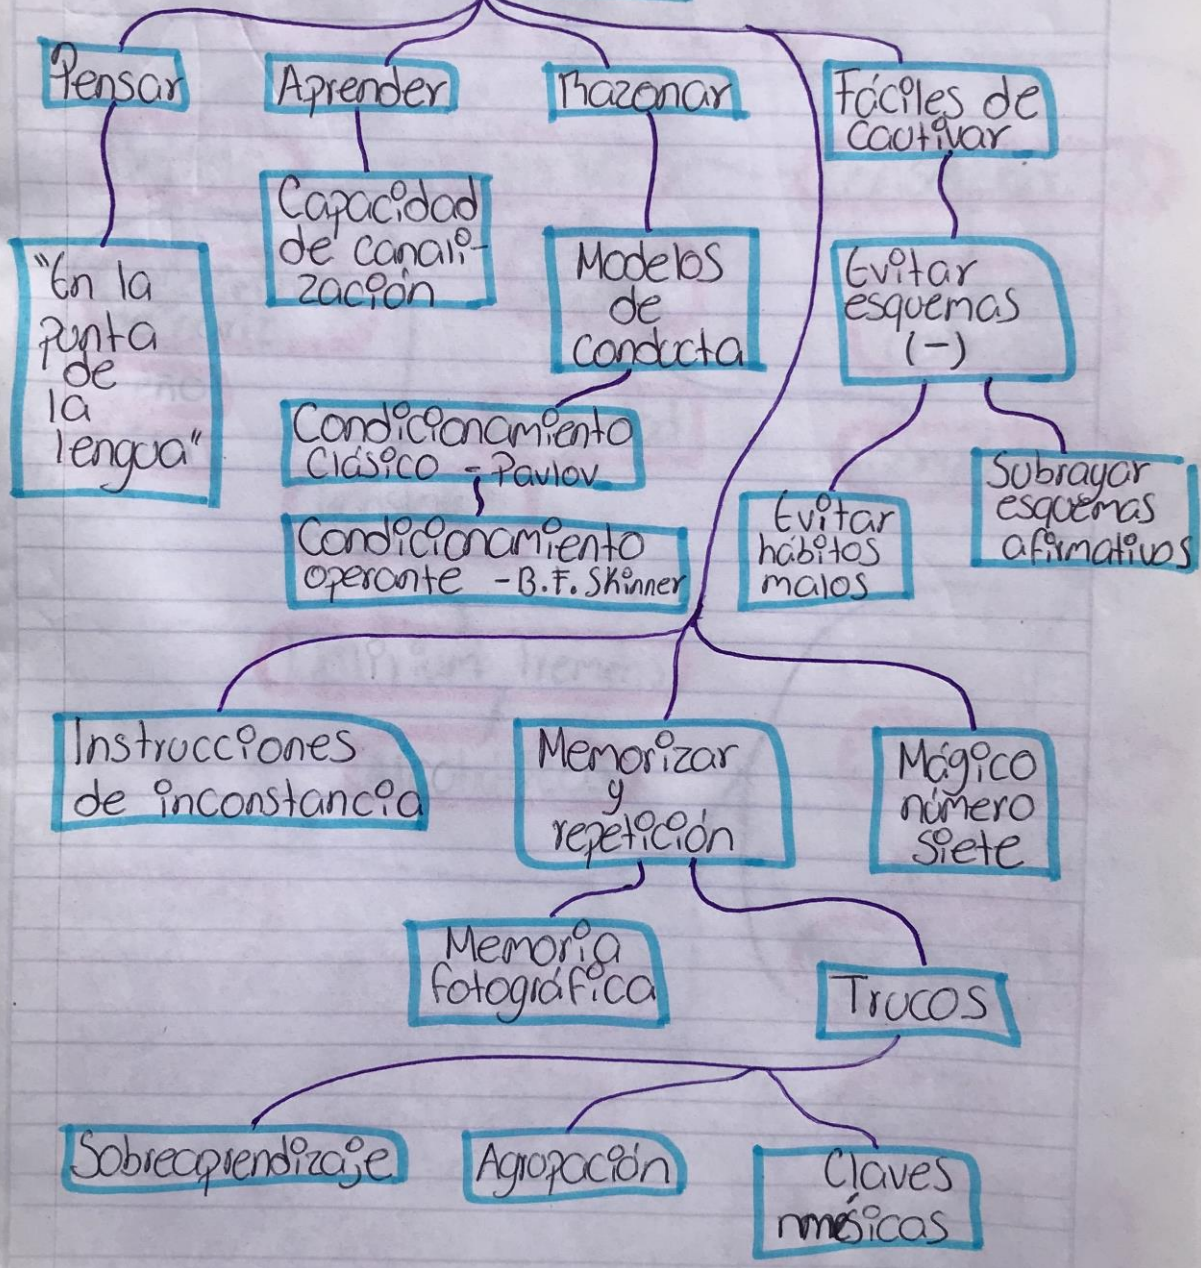 Pensar
Aprender
Razonar
Fáciles de
cautivar
"En la
punta
de
la
lengua"
Capacidad
de canali-
zación
Modelos
de
conducta
Evitar
esquemas
(-)
Condicionamiento
Clásico - Pavlov
Condicionamiento
operante - B.F. Skinner
Evitar
hábitos
malos
Subrayar
esquemas
afirmativos
Instrucciones
de inconstancia
Memorizar
y
repetición
Mágico
número
siete
Memoria
fotográfica
Trucos
Sobreaprendizaje
Agrupación
Claves
nmésicas